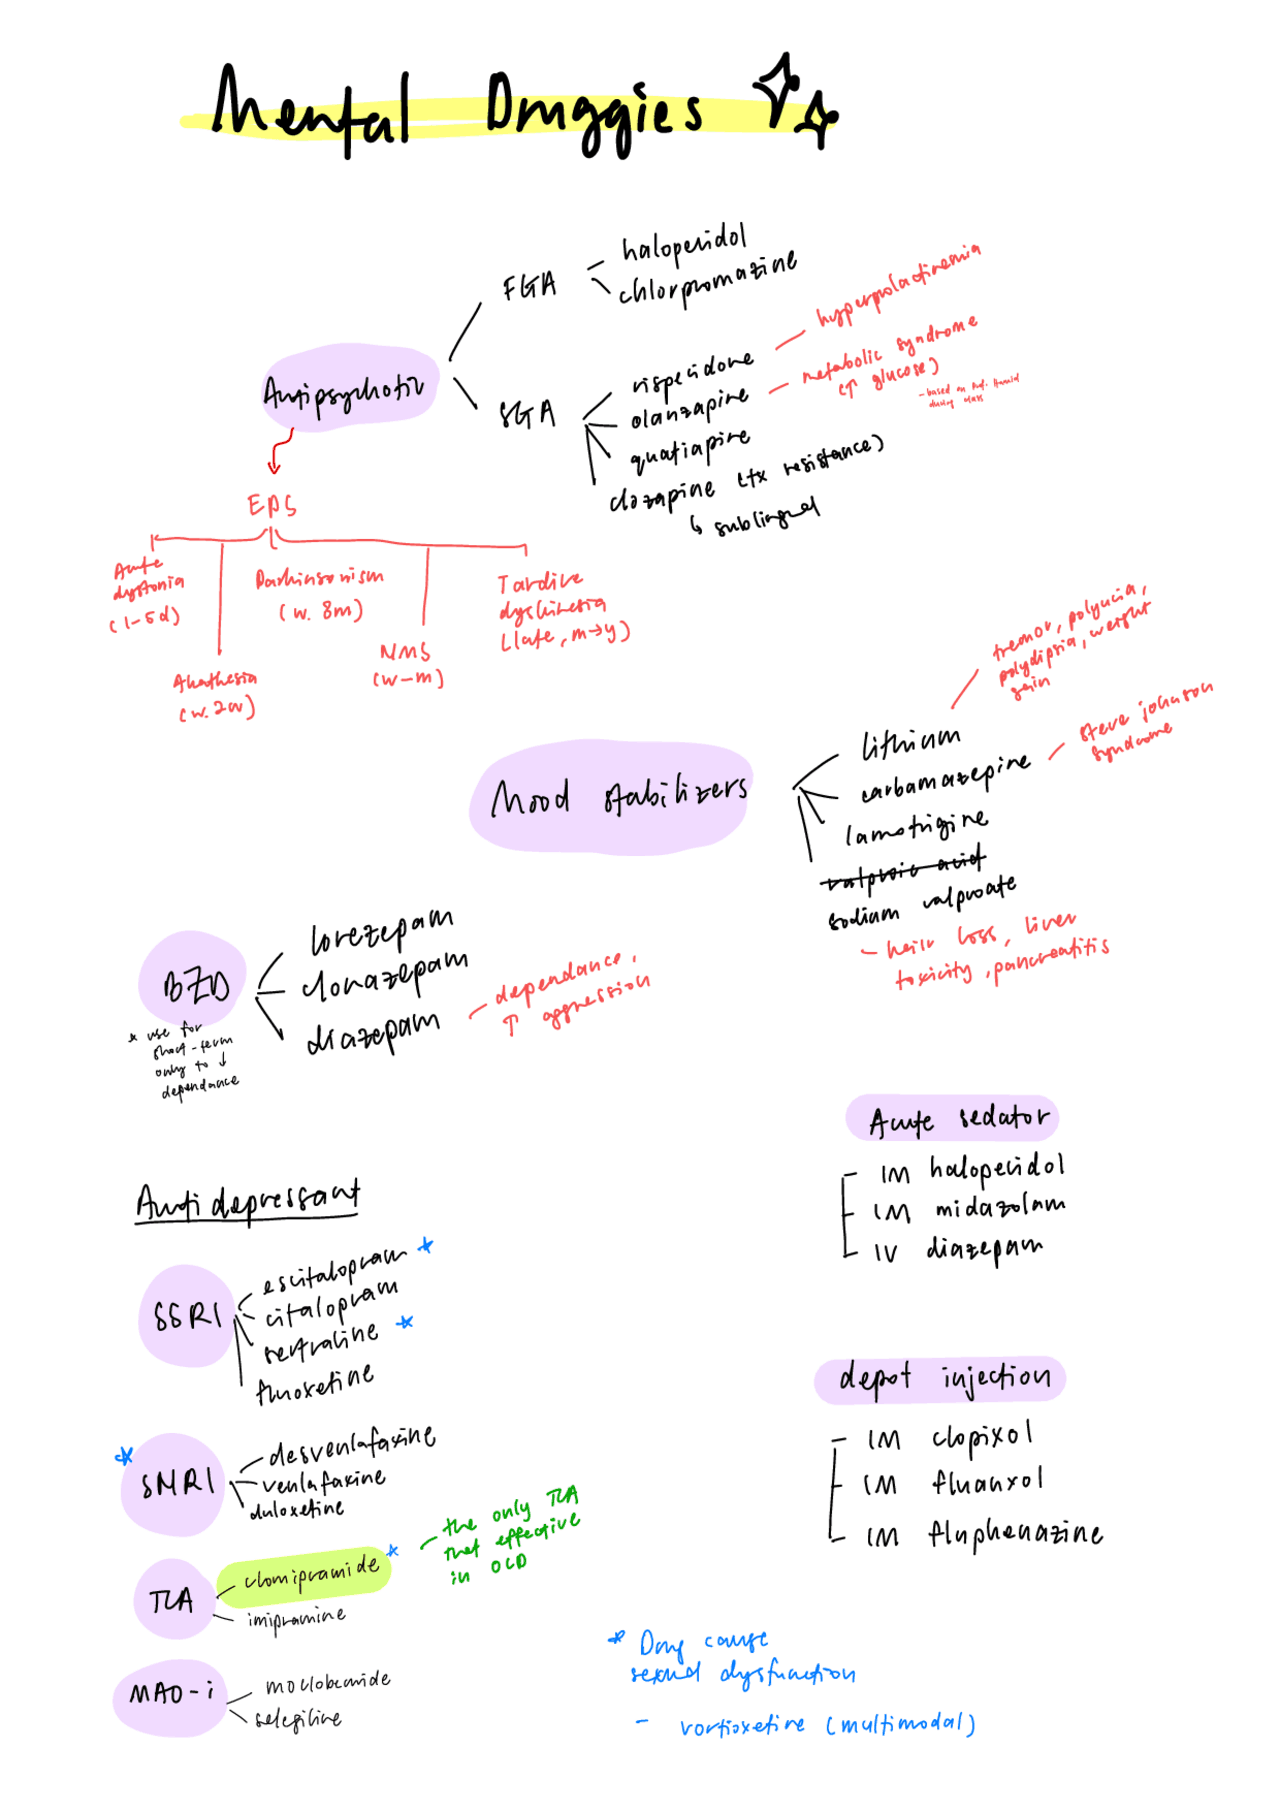 Mental Druggies
FGA
haloperidol
chlorpromazine
Antipsychotic
SGA
risperidone
hyperprolactinemia
olanzapine
metabolic syndrome
(↑ glucose)
- based on
during class
quatiapine
clozapine (tx resistance)
↳ sublingual
EPS
Acute
dystonia
(1-5d)
Akathesia
(w. 2w)
Parkinsonism
(w. 8m)
NMS
(w-m)
Tardive
dyskinesia
(late, m→y)
Mood stabilizers
lithium
tremor, polyuria,
polydipsia, weight
gain
carbamazepine
steve johnson
syndrome
lamotrigine
valproic acid
sodium valproate
- hair loss, liver
toxicity, pancreatitis
BZD
* use for
short-term
only to ↓
dependance
lorezepam
clonazepam
diazepam
- dependance,
↑ aggression
Acute sedator
IM haloperidol
IM midazolam
IV diazepam
Antidepressant
SSRI
escitalopram *
citalopram
sertraline *
fluoxetine
* SNRI
desvenlafaxine
venlafaxine
duloxetine
TCA
clomipramide *
- the only TCA
that effective
in OCD
imipramine
MAO-i
moclobemide
selegiline
depot injection
IM clopixol
IM fluanxol
IM fluphenazine
* Drug cause
sexual dysfunction
- vortioxetine (multimodal)